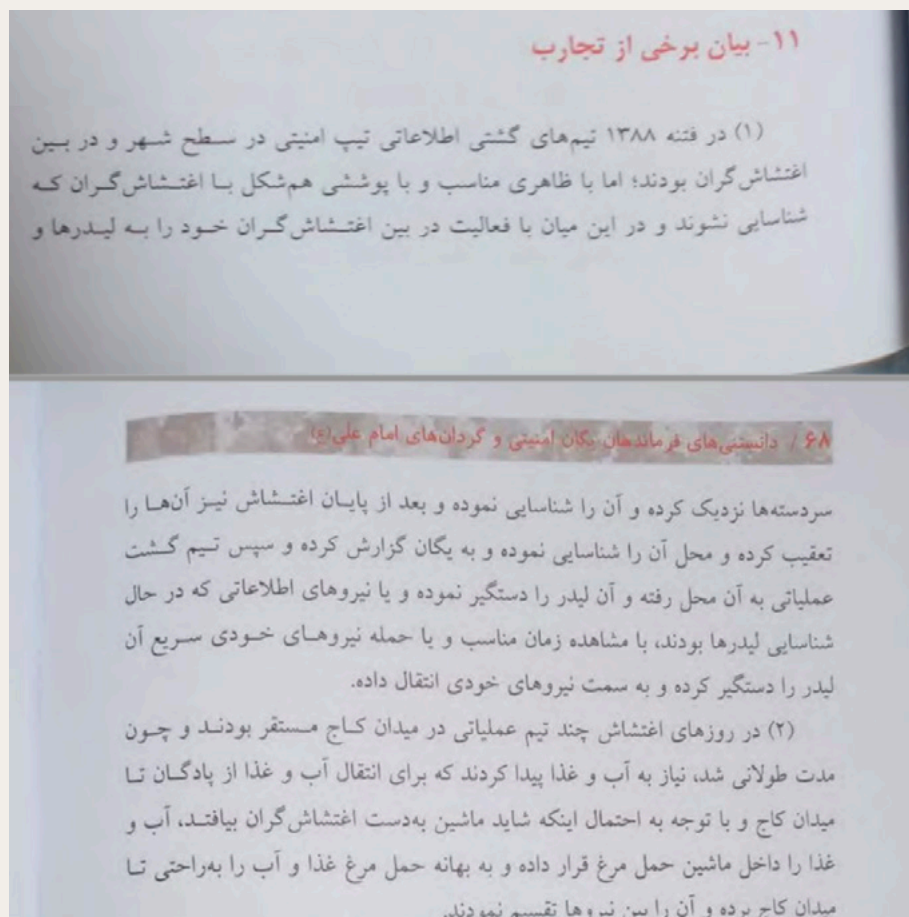 ۱۱- بیان برخی از تجارب
(۱) در فتنه ۱۳۸۸ تیم‌های گشتی اطلاعاتی تیپ امنیتی در سطح شهر و در بین
اغتشاش‌گران بودند؛ اما با ظاهری مناسب و با پوششی هم‌شکل با اغتشاش‌گران که
شناسایی نشوند و در این میان با فعالیت در بین اغتشاش‌گران خود را به لیدرها و
۶۸ / دانستنی‌های فرماندهان یگان امنیتی و گردان‌های امام علی(ع)
سردسته‌ها نزدیک کرده و آن را شناسایی نموده و بعد از پایان اغتشاش نیز آن‌ها را
تعقیب کرده و محل آن را شناسایی نموده و به یگان گزارش کرده و سپس تیم گشت
عملیاتی به آن محل رفته و آن لیدر را دستگیر نموده و یا نیروهای اطلاعاتی که در حال
شناسایی لیدرها بودند، با مشاهده زمان مناسب و یا حمله نیروهای خودی سریع آن
لیدر را دستگیر کرده و به سمت نیروهای خودی انتقال داده.
(۲) در روزهای اغتشاش چند تیم عملیاتی در میدان کاج مستقر بودند و چون
مدت طولانی شد، نیاز به آب و غذا پیدا کردند که برای انتقال آب و غذا از پادگان تا
میدان کاج و با توجه به احتمال اینکه شاید ماشین به‌دست اغتشاش‌گران بیافتد، آب و
غذا را داخل ماشین حمل مرغ قرار داده و به بهانه حمل مرغ غذا و آب را به‌راحتی تا
میدان کاج برده و آن را بین نیروها تقسیم نمودند.